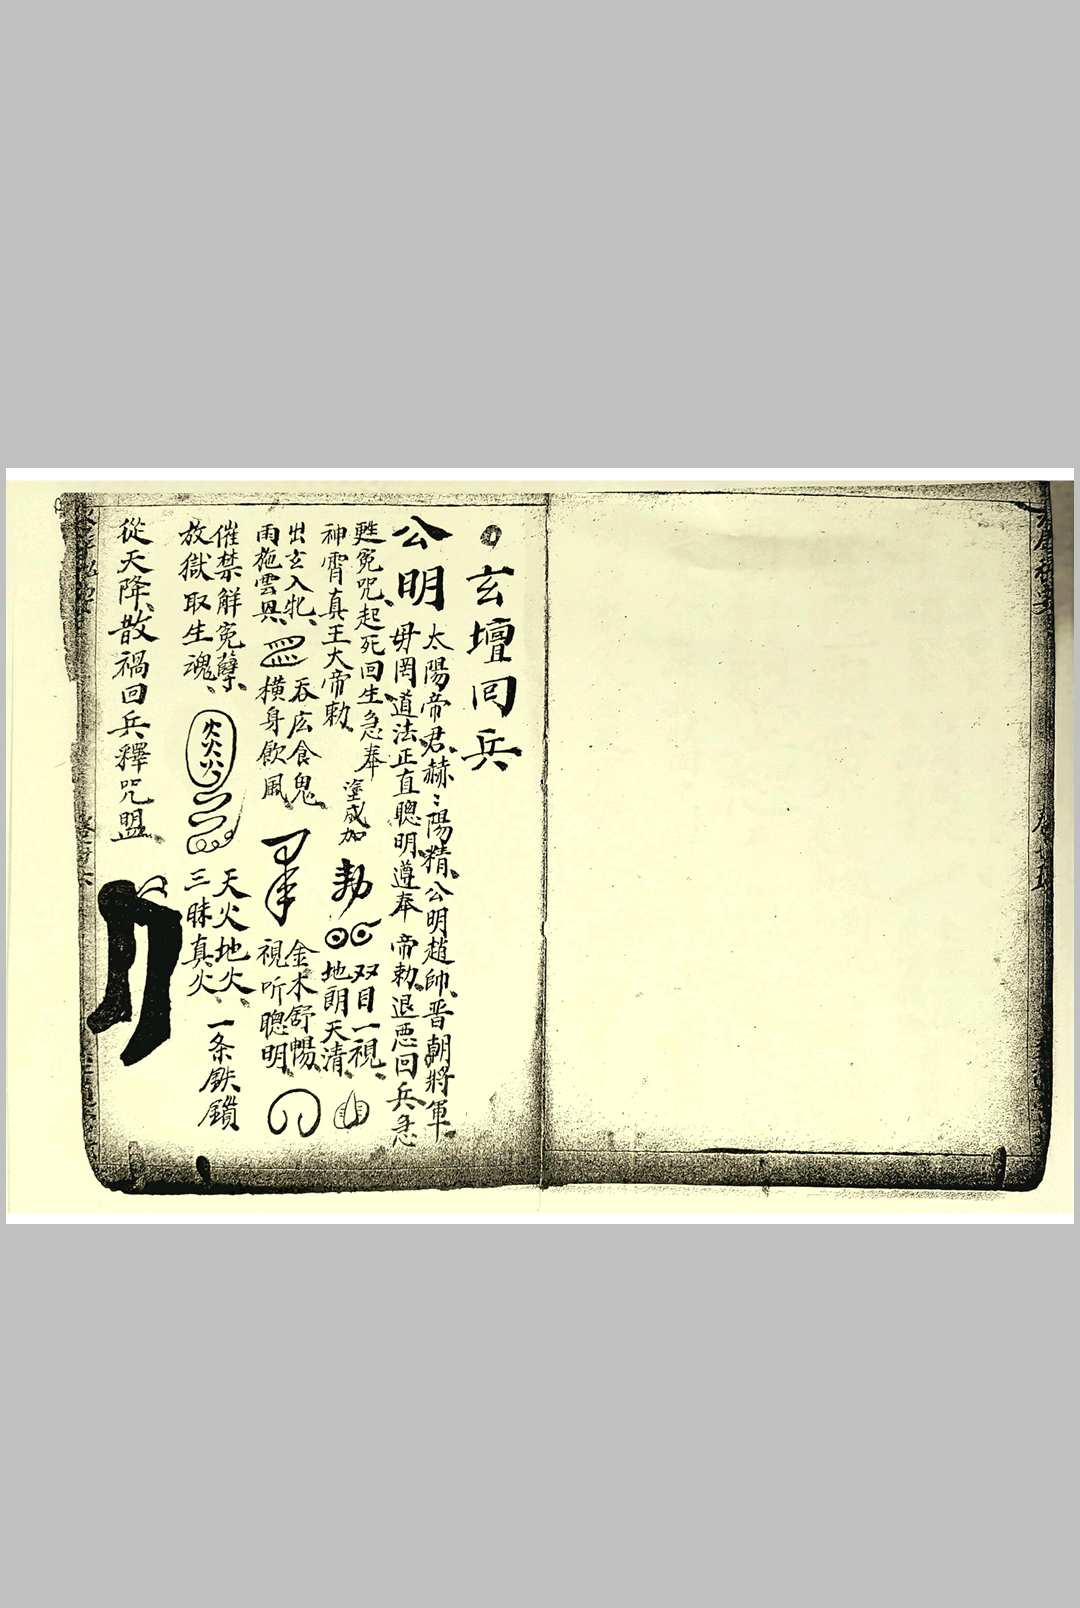 玄壇回兵
公明
太陽帝君、赫〻陽精、公明趙帥、晋朝將軍、
毋罔道法正直聰明遵奉 帝勅、退悪回兵、急
甦冤咒、起死回生急奉
神霄真王大帝勅、
塗咸加
勅
双目一視、
地朗天清、
出玄入牝、
雨拖雲興、
吞広食鬼、
横身飲風、
金木舒暢、
視听聰明、
催禁解冤孽、
放獄取生魂、
火火火
天火地火、
三昧真火、
一条鉄鎖
從天降、散禍回兵釋咒盟、